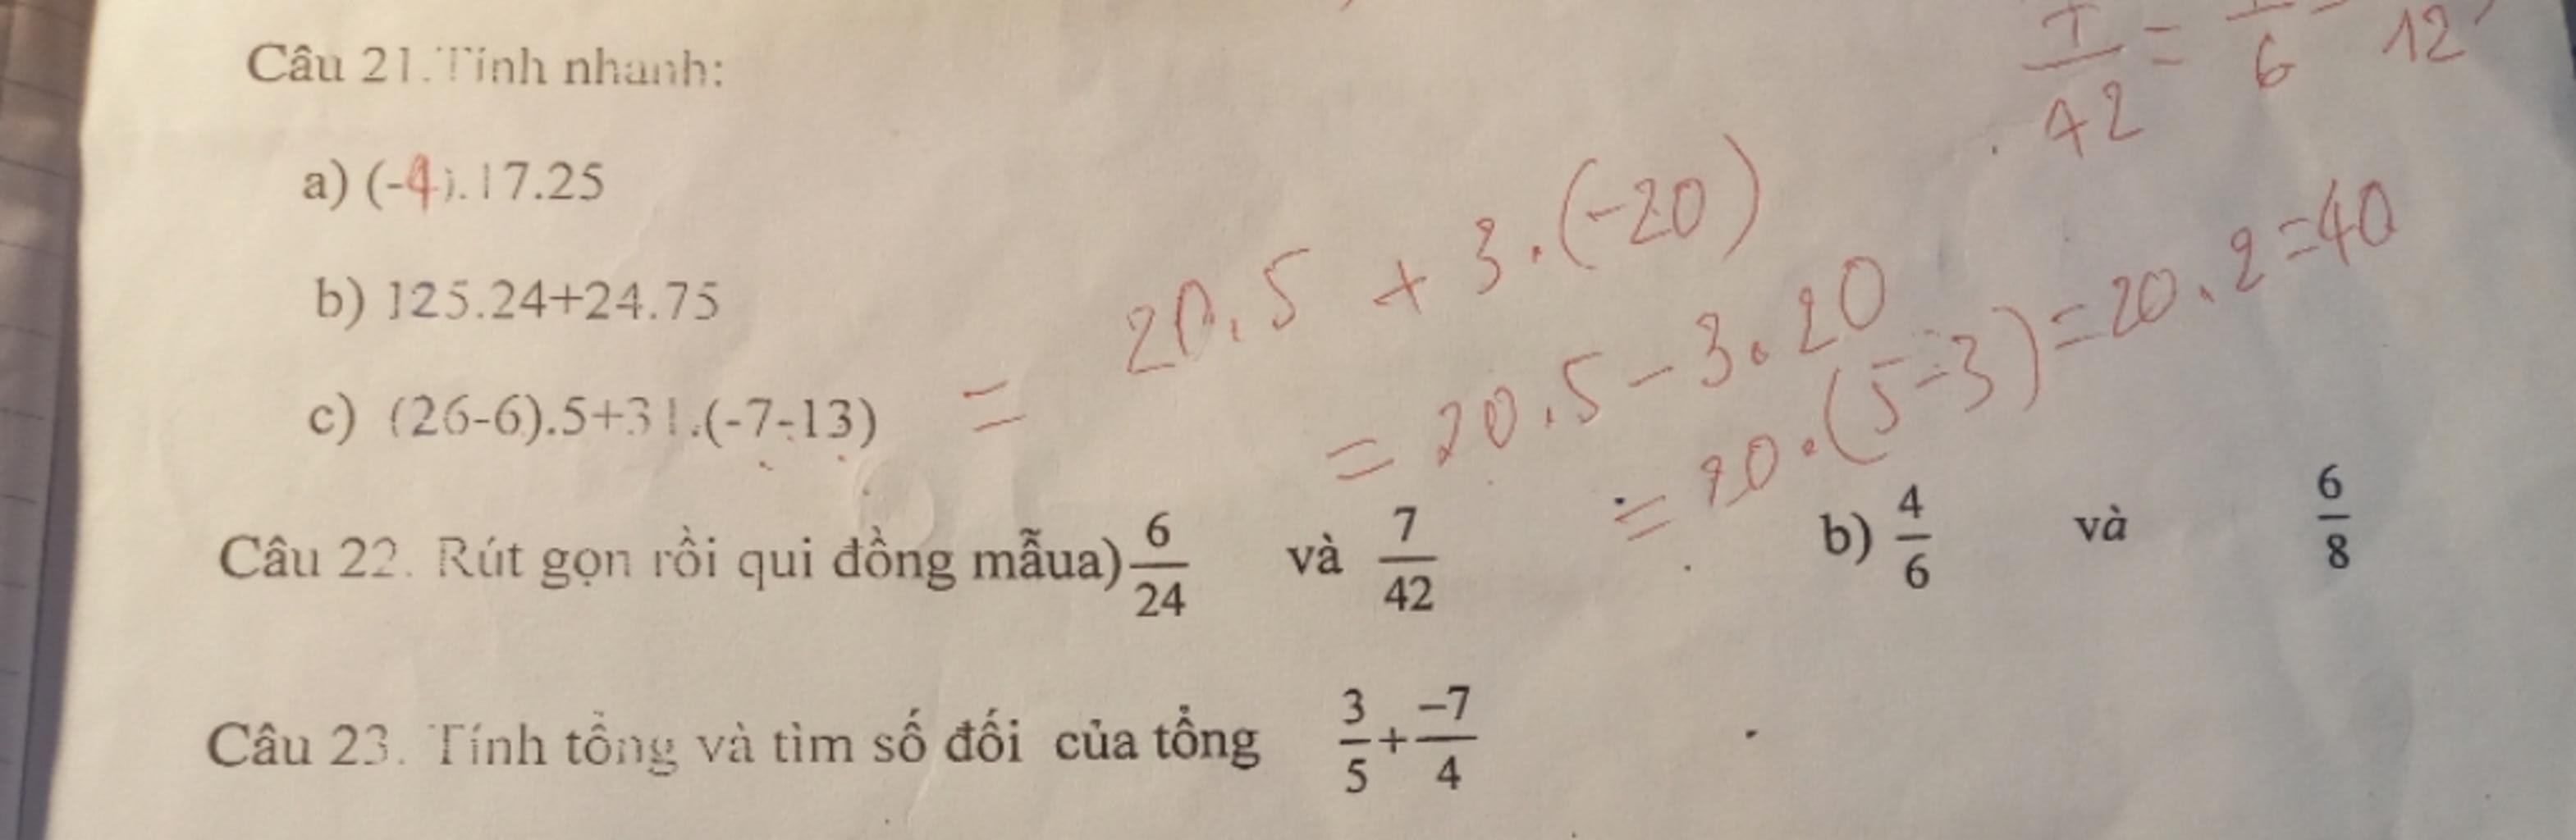 Câu 21.Tính nhanh:
a) (-4).17.25
b) 125.24+24.75
c) (26-6).5+31.(-7-13)
= 20.5 + 3.(-20)
= 20.5-3.20
= 20.(5-3)=20.2=40
42 = 6 12
Câu 22. Rút gọn rồi qui đồng mẫua) 6/24 và 7/42 b) 4/6 và 6/8
Câu 23. Tính tổng và tìm số đối của tổng 3/5 + -7/4